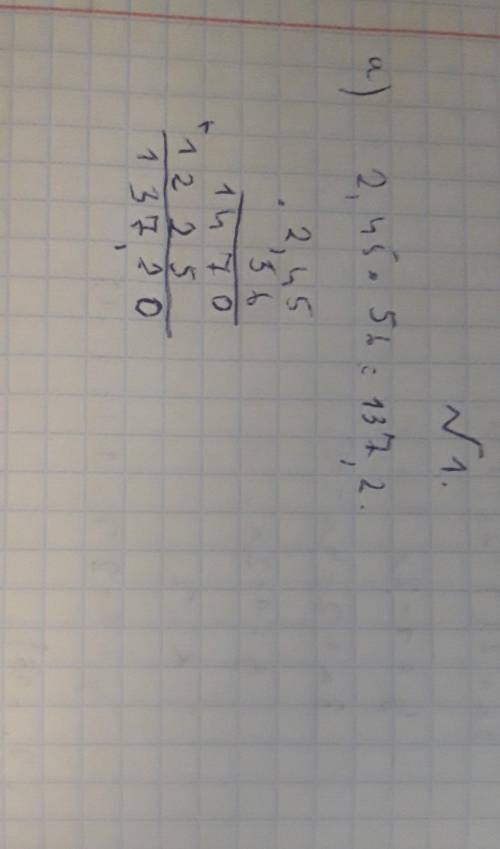 № 1.
а) 2,45 · 56 = 137,2.
· 2,45
56
1470
+ 1225
137,20